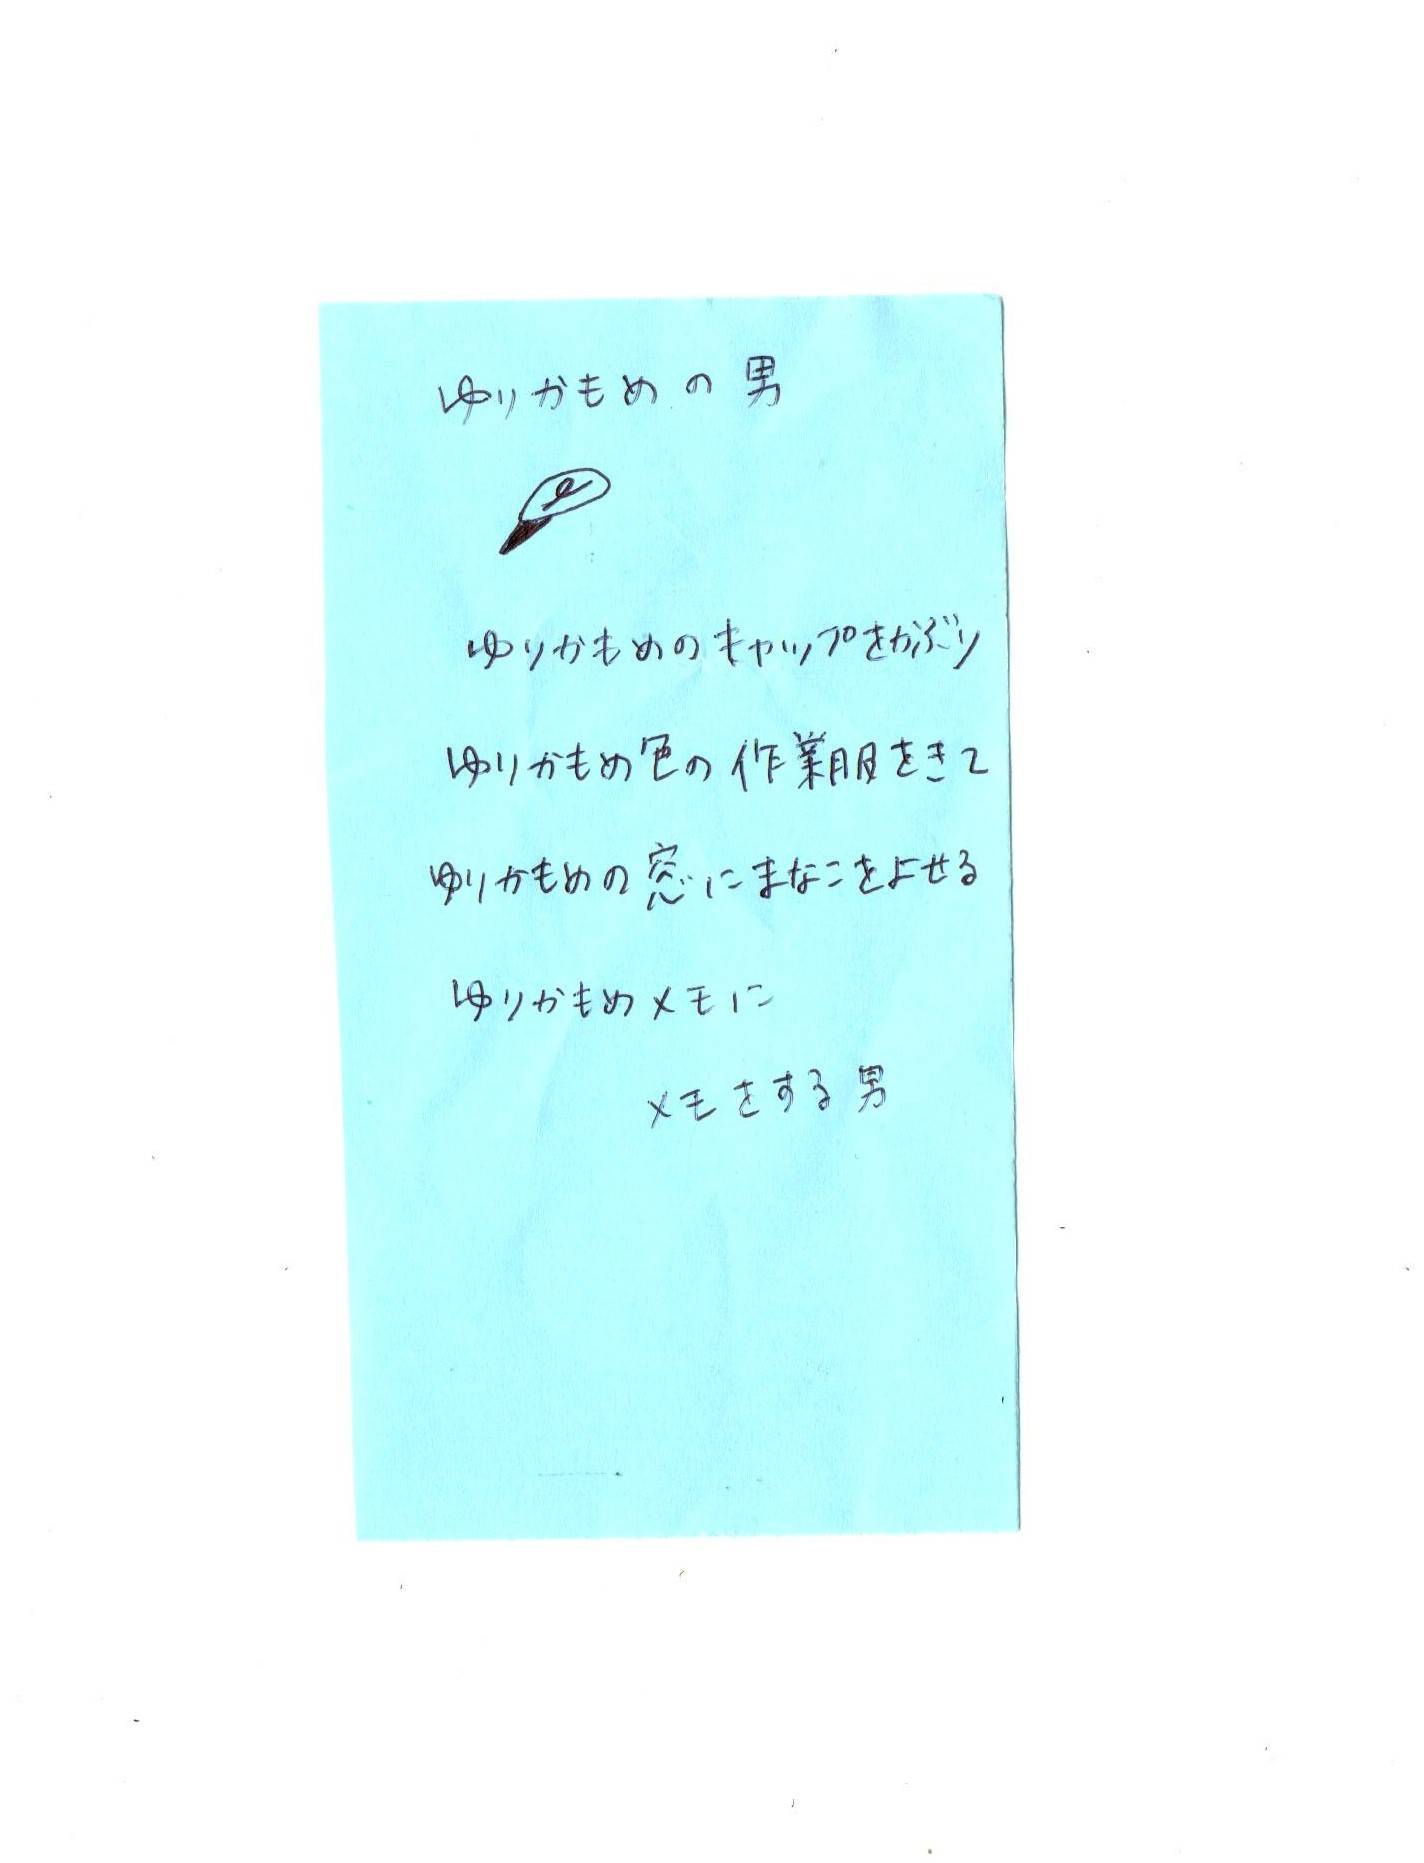 ゆりかもめの男
ゆりかもめのキャップをかぶり
ゆりかもめ色の作業服をきて
ゆりかもめの窓にまなこをよせる
ゆりかもめメモに
メモをする男